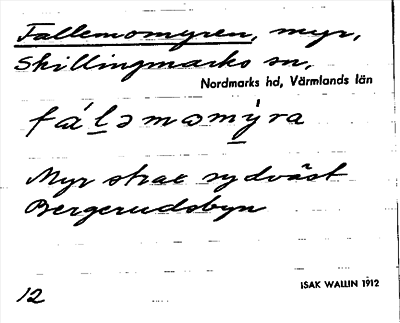 Fallemomyren, myr,
Skillingmarks sn,
Nordmarks hd, Värmlands län
fá̱l̠əmɷmý̠ra
Myr strax sydväst
Bergerudsbyn
12
ISAK WALLIN 1912